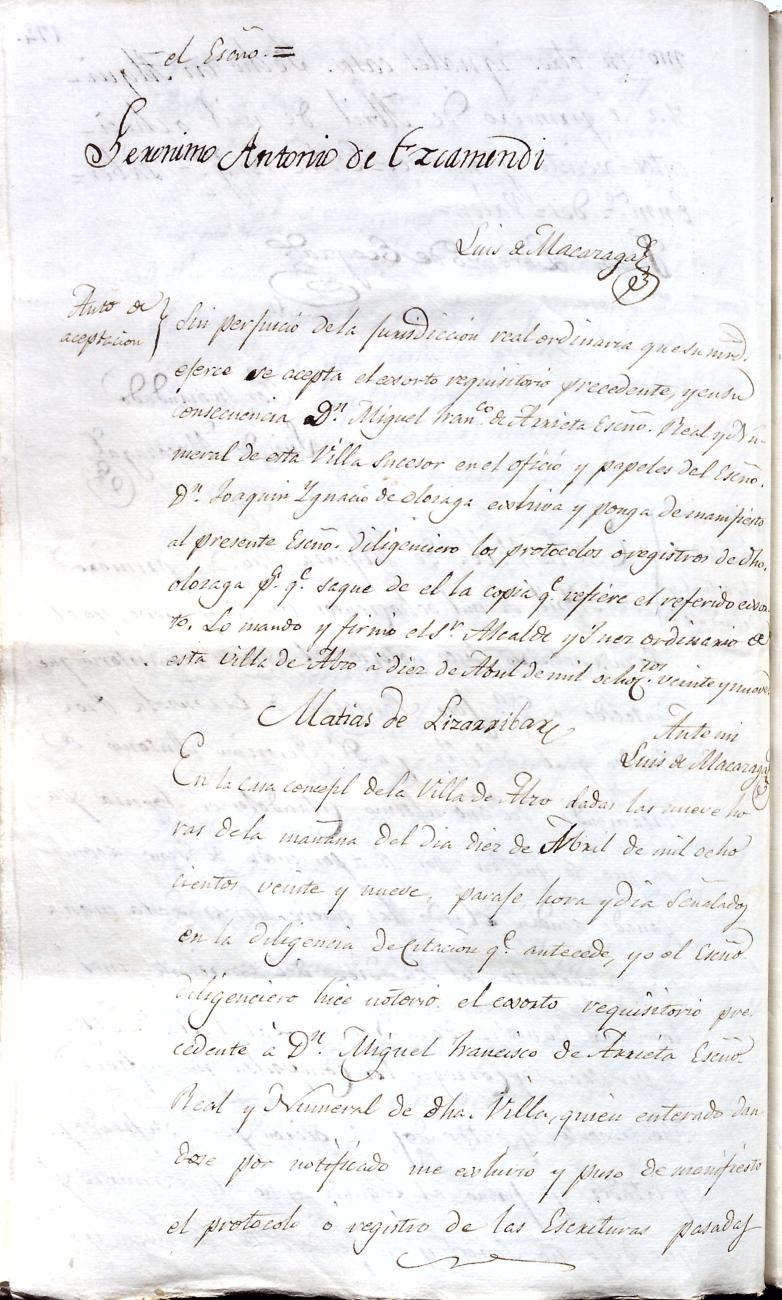 el Esćño. =
Geronimo Antonio de Ezcamendi
Luis de Macazaga
Auto de
aceptacion
Sin perjuicio de la Jurisdiccion real ordinaria que su mrd.
ejerce se acepta el exorto requisitorio precedente, y en su
consecuencia Dn. Miguel Franco. de Arrieta Escño. Real y Nu-
meral de esta Villa sucesor en el oficio y papeles del Escño.
Dn. Joaquin Ygnacio de Olozaga exhiva y ponga de manifiesto
al presente Escño. diligenciero los protocolos ó registros de dho.
Olozaga pa. qe. saque de el la copia qe. refiere el referido exor-
to. Lo mandó y firmó el Sr. Alcalde y Juez ordinario de
esta Villa de Alzo á diez de Abril de mil ochoztos. veinte y nueve.
Matias de Lizarribar
Ante mi
Luis de Macazaga
En la casa concejl de la Villa de Alzo dadas las nueve ho
ras de la mañana del dia diez de Abril de mil ocho
cientos veinte y nueve, paraje hora y dia señalados
en la diligencia de Citacion qe. antecede, yo el Escño.
diligenciero hice notorio el exorto requisitorio pre
cedente á Dn. Miguel Francisco de Arrieta Escño.
Real y Numeral de dha. Villa, quien enterado dan
dose por notificado me exhivió y puso de manifiesto
el protocolo ó registro de las Escrituras pasadas